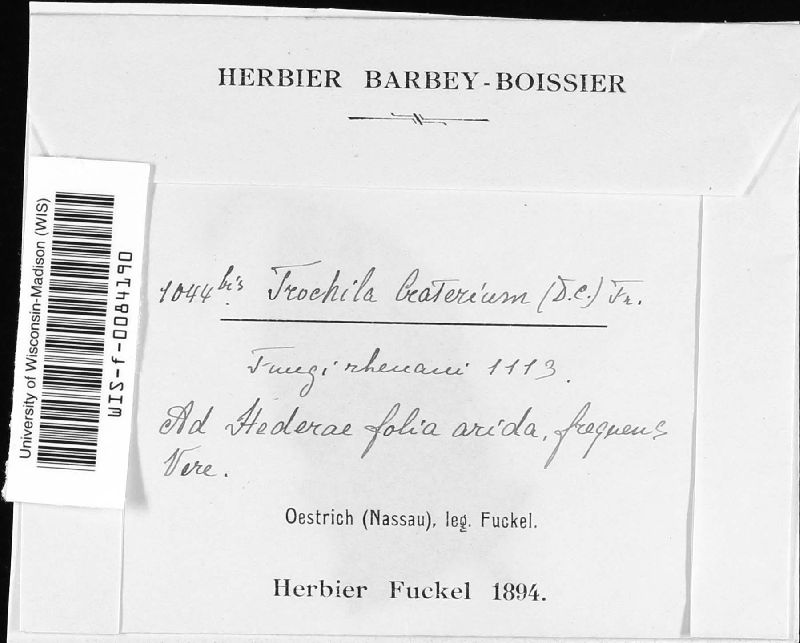 HERBIER BARBEY-BOISSIER
University of Wisconsin-Madison (WIS)
WIS-f-0084190
1044 bis. Trochila Craterium (D.C.) Fr.
Fungi rhenani 1113.
Ad Hederae folia arida, frequens
Vere.
Oestrich (Nassau), leg. Fuckel.
Herbier Fuckel 1894.